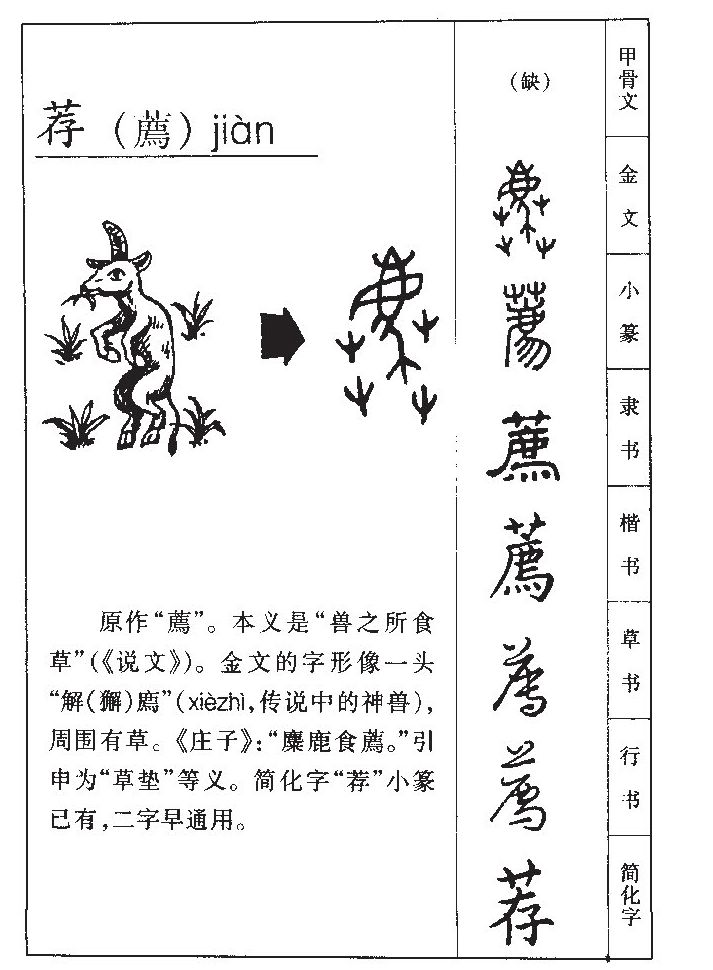 荐（薦）jiàn
原作“薦”。本义是“兽之所食
草”(《说文》)。金文的字形像一头
“解(獬)廌”(xièzhì,传说中的神兽),
周围有草。《庄子》:“麋鹿食薦。”引
申为“草垫”等义。简化字“荐”小篆
已有,二字早通用。
（缺）
薦
薦
薦
薦
荐
甲骨文
金文
小篆
隶书
楷书
草书
行书
简化字